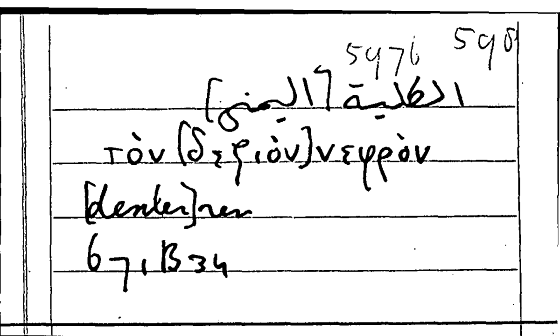 5976 598
الكلية [اليمنى]
τὸν [δεξιὸν] νεφρὸν
[dexter] ren
67,B34